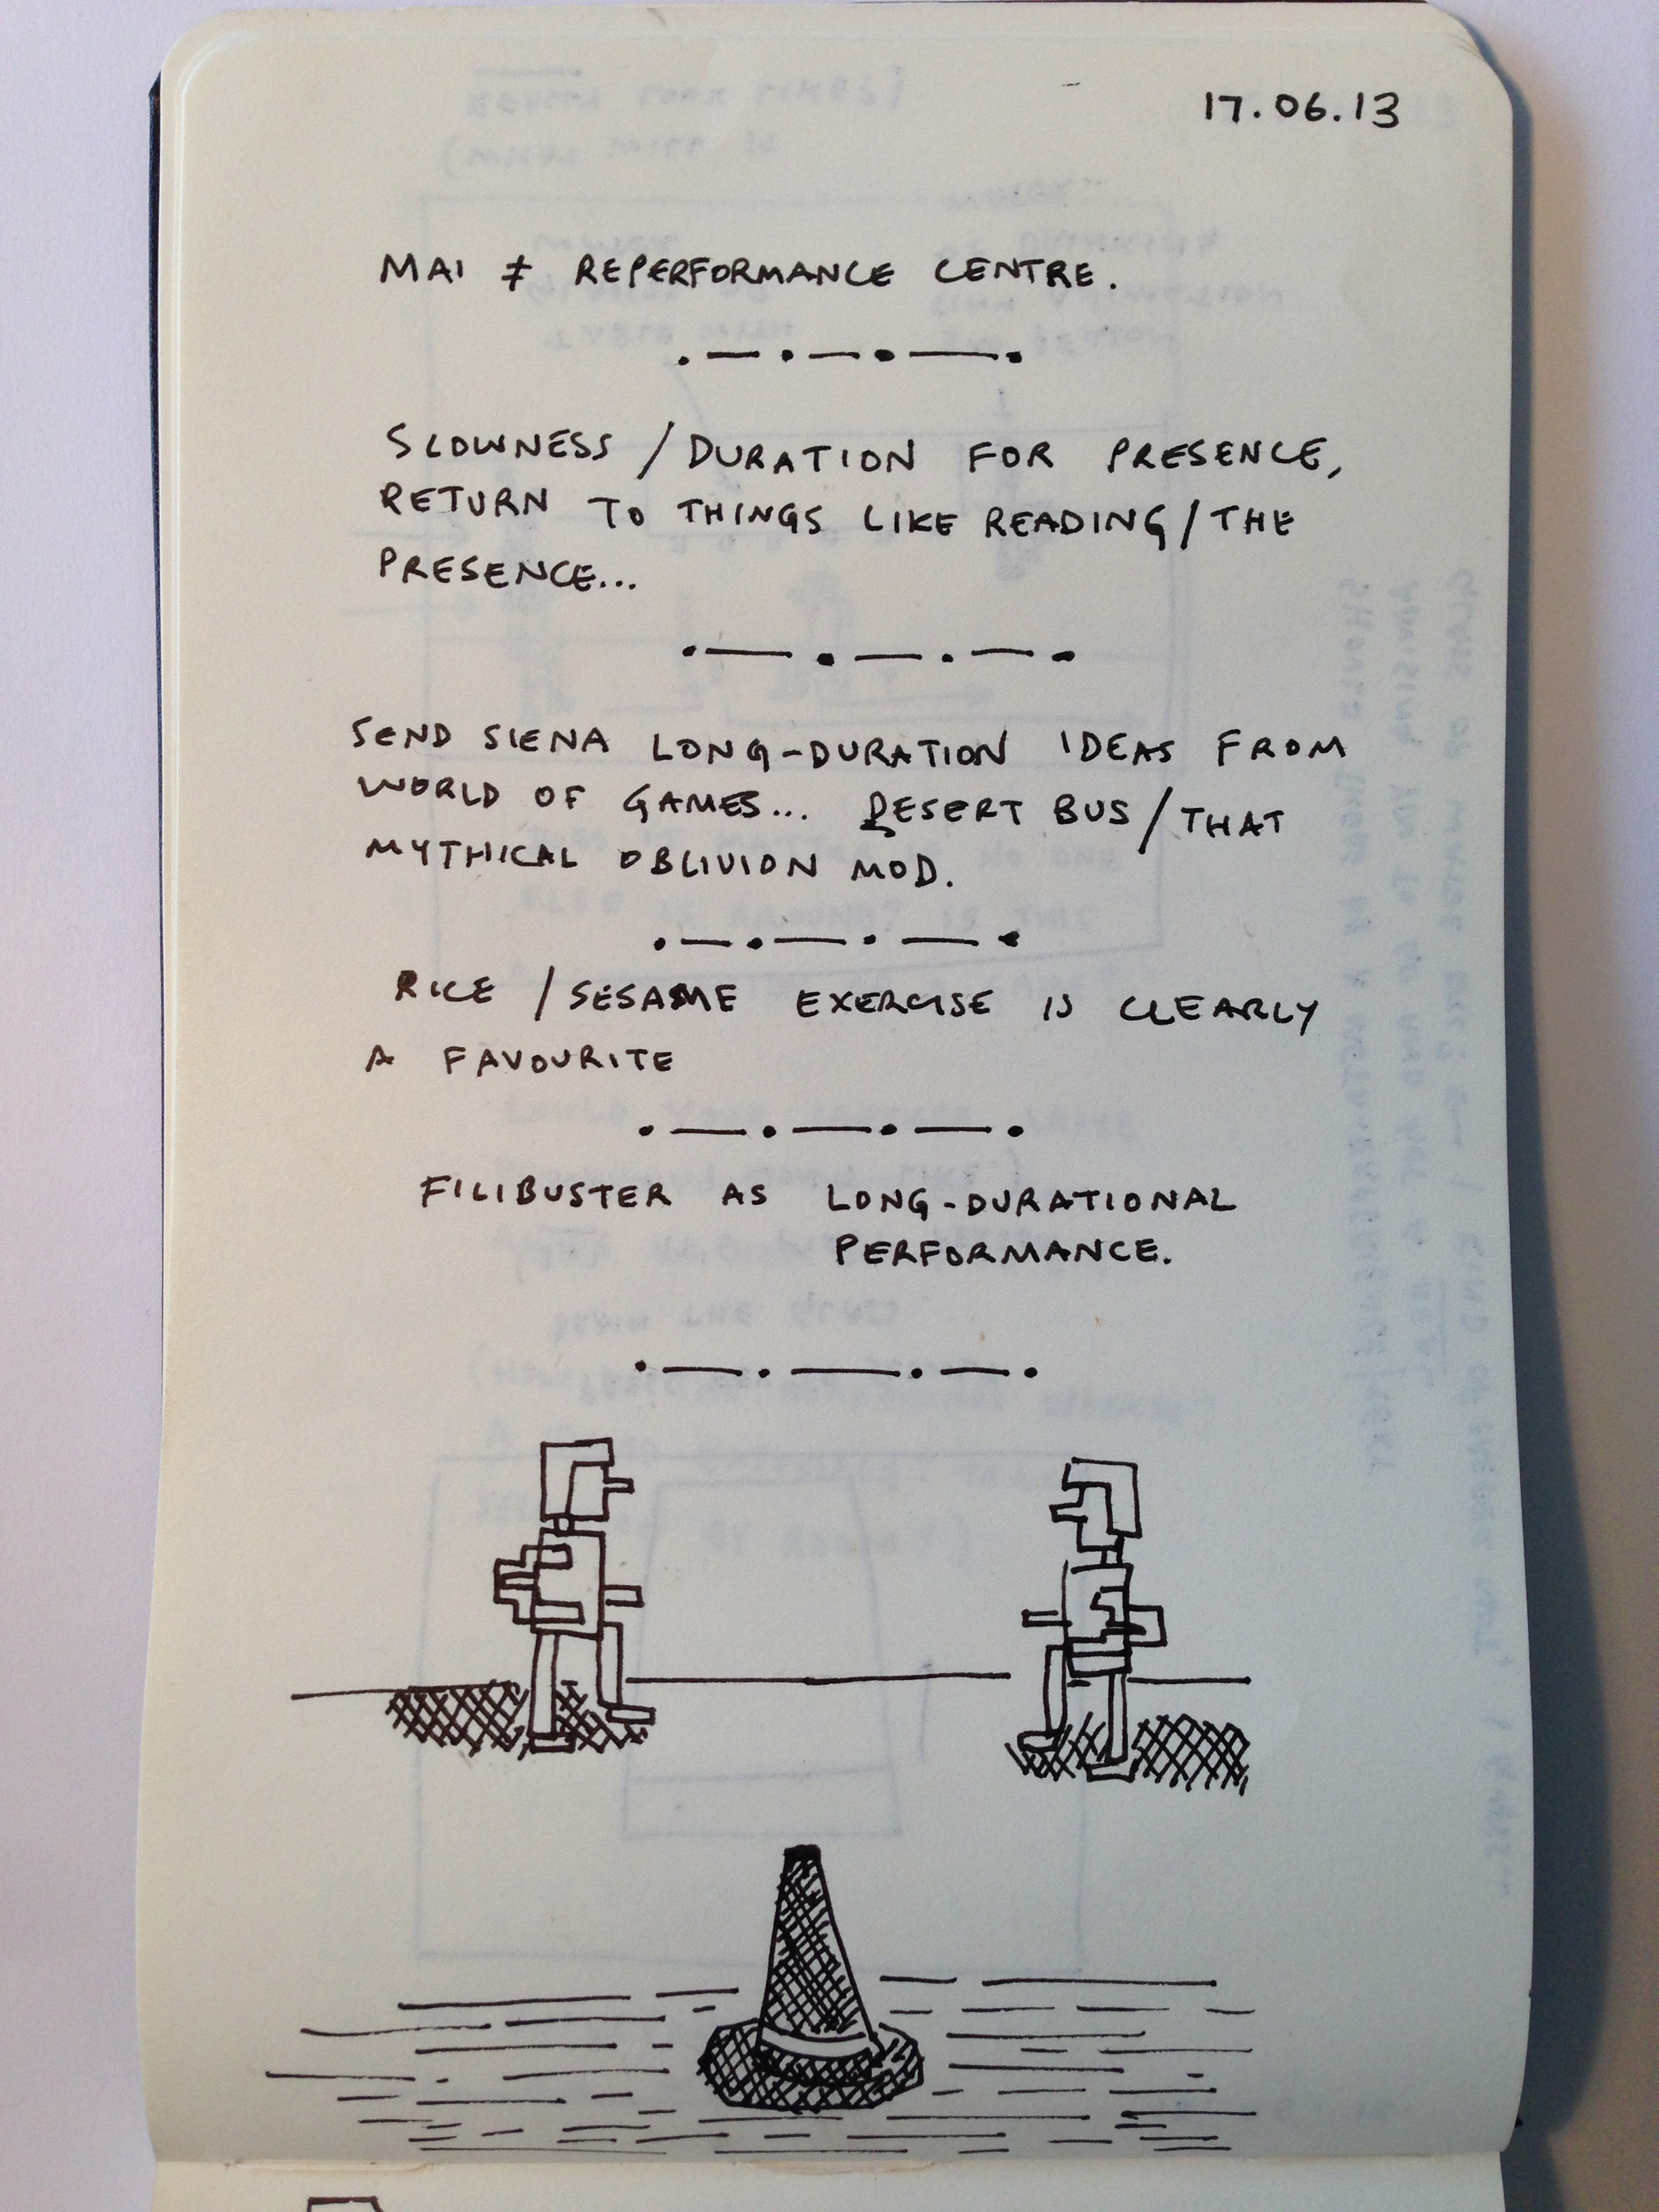 17.06.13
MAI ≠ REPERFORMANCE CENTRE.
SLOWNESS / DURATION FOR PRESENCE,
RETURN TO THINGS LIKE READING / THE
PRESENCE...
SEND SIENA LONG-DURATION IDEAS FROM
WORLD OF GAMES... DESERT BUS / THAT
MYTHICAL OBLIVION MOD.
RICE / SESAME EXERCISE IS CLEARLY
A FAVOURITE
FILIBUSTER AS LONG-DURATIONAL
PERFORMANCE.